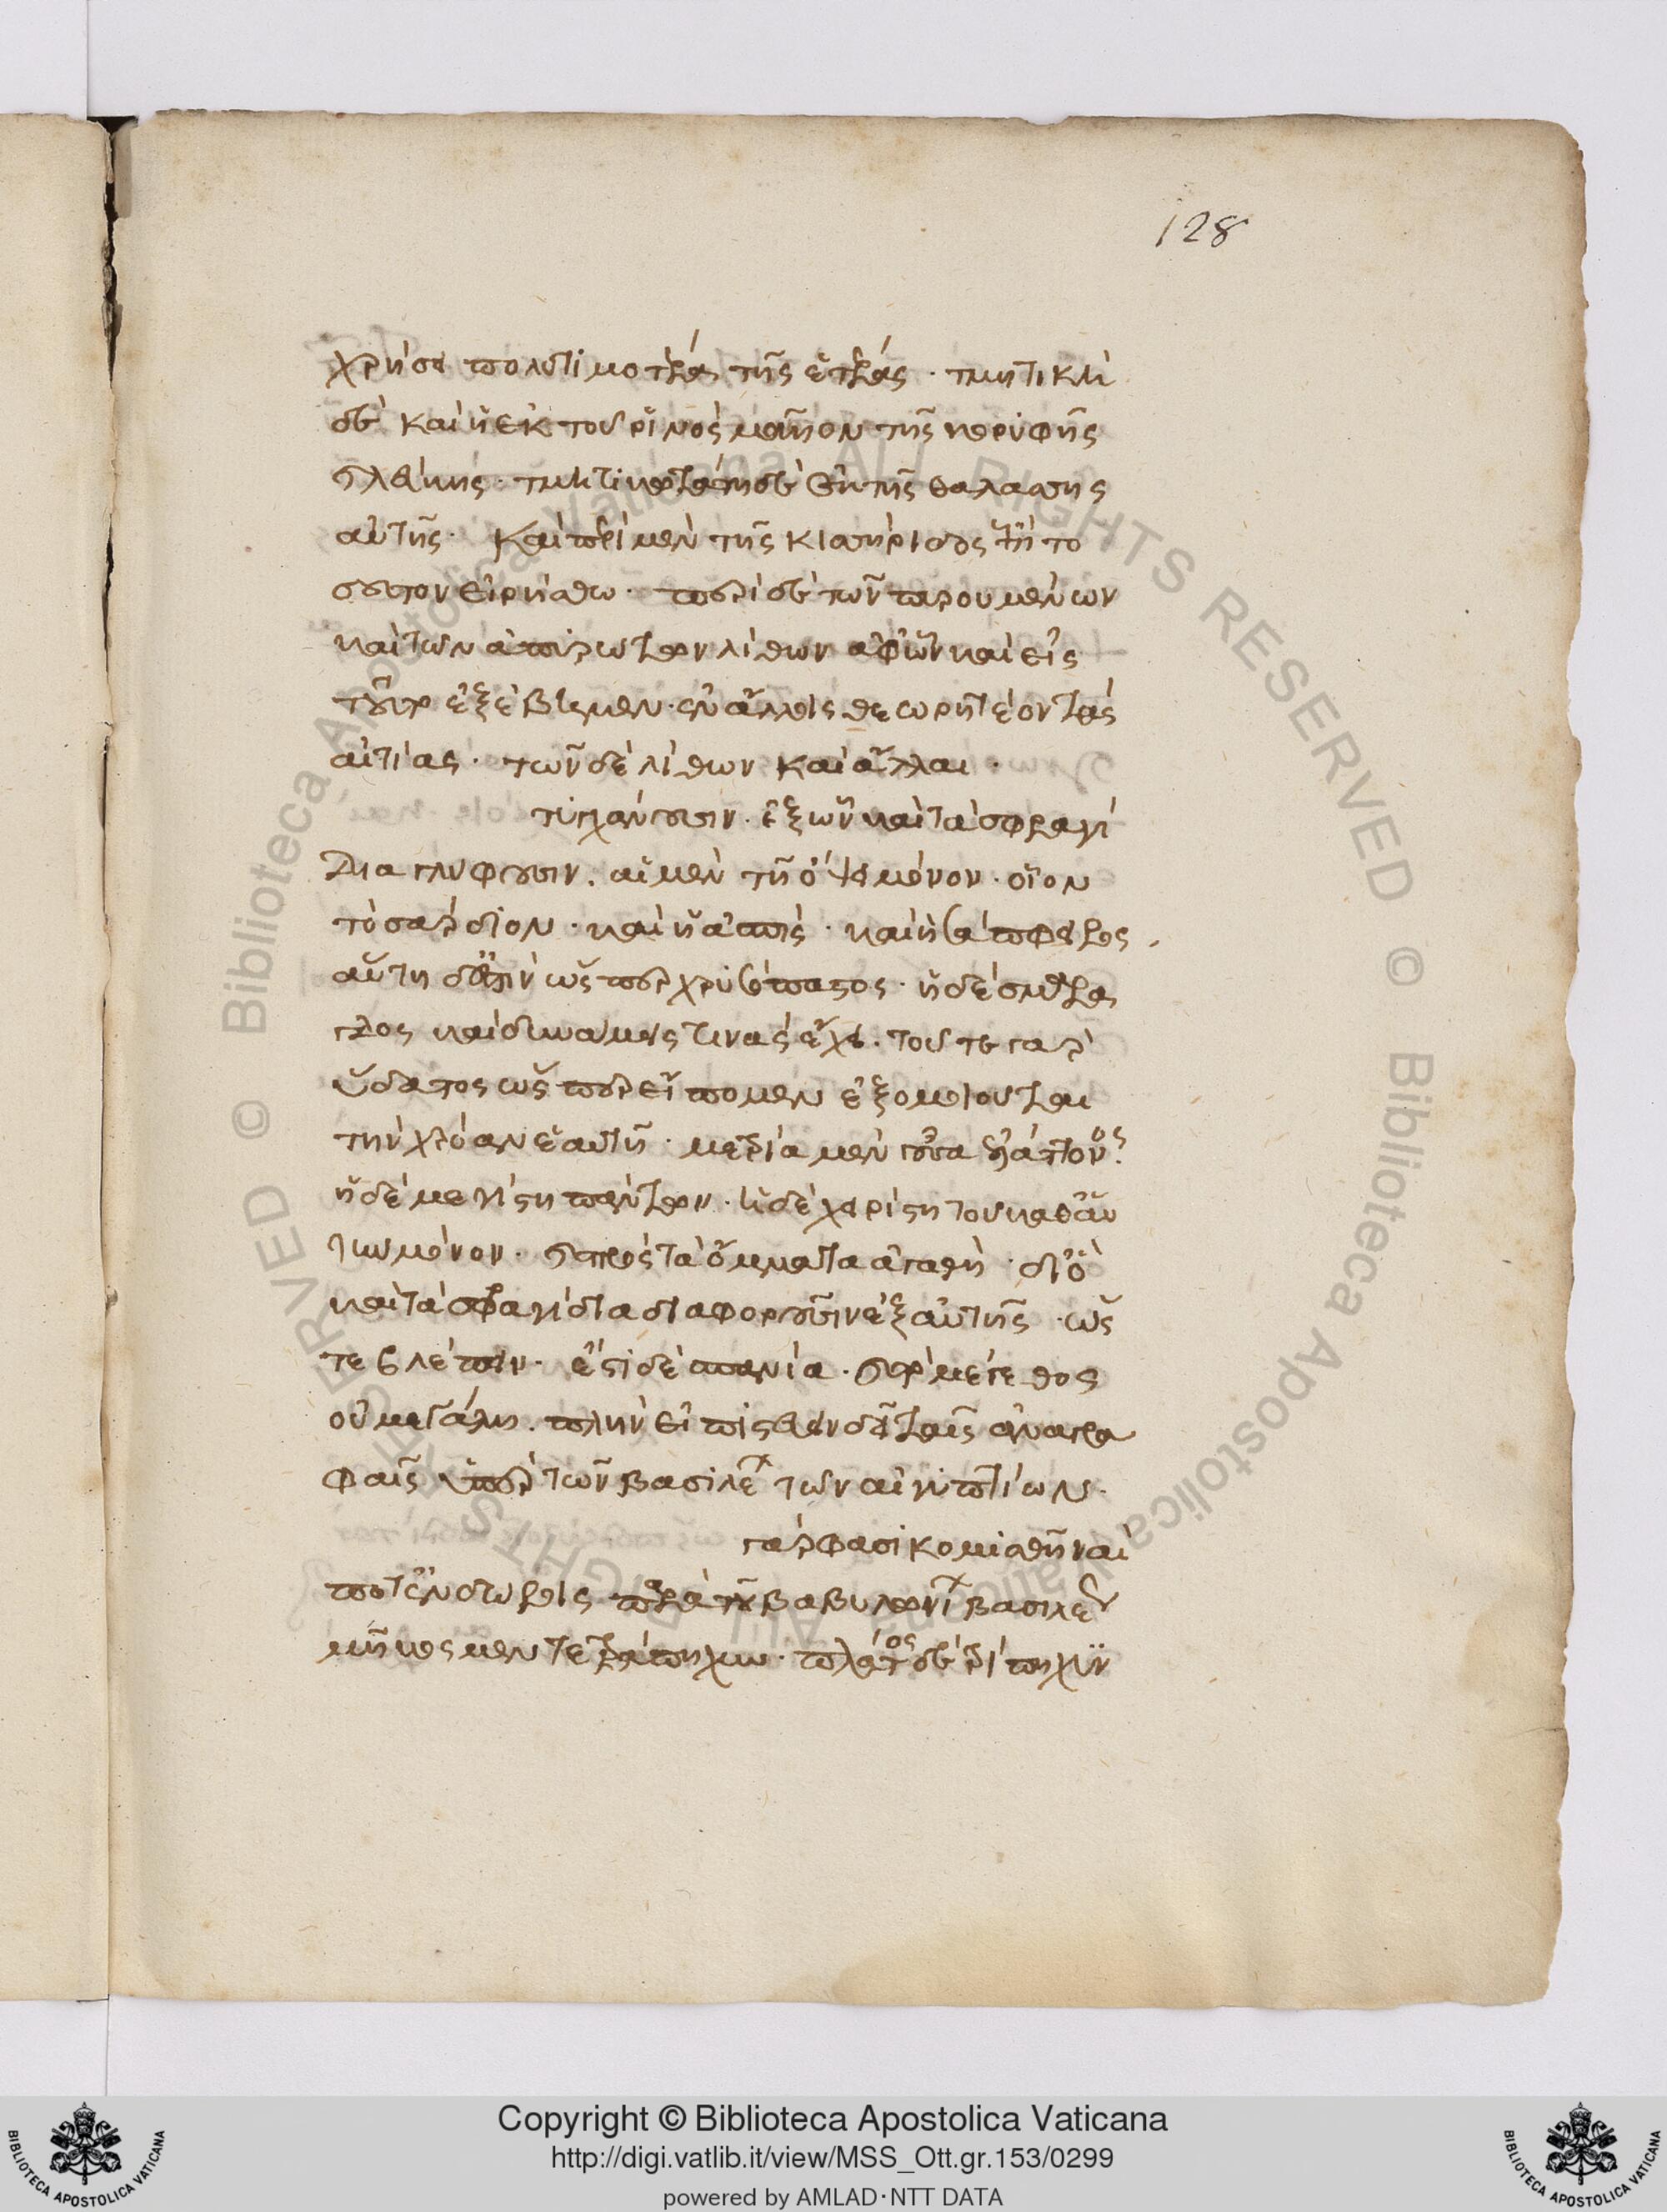 128
χρήσει πολυτιμοτέρα τῆς ἑτέρας · τμητικὴ
δὲ καὶ ἡ ἐκ τοῦ ῥινὸς μᾶλλον τῆς κορύφης
ἑλένης · τμητικωτάτη δὲ ἐκ τῆς θαλάσσης
αὐτῆς · καὶ περὶ μὲν τῆς κισσήριδος ἐπὶ το
σοῦτον εἰρήσθω · περὶ δὲ τῶν πυρουμένων
καὶ τῶν ἀπυρώτων λίθων ἀφ' ὧν καὶ εἰς
τοῦτο ἐξέβημεν · ἐν ἄλλοις θεωρητέον τὰς
αἰτίας · τῶν δὲ λίθων καὶ ἄλλαι ·
τυγχάνουσιν · ἐξ ὧν καὶ τὰ σφραγί
δια γλύφουσιν · αἱ μὲν τῇ ὄψει μόνον · οἷον
τὸ σάρδιον · καὶ ἡ ἴασπις · καὶ ἡ σάπφειρος
αὕτη δ' ἐστὶν ὥσπερ χρυσόπαστος · ἡ δὲ σμάρα
γδος καὶ δυνάμεις τινὰς ἔχει · τοῦ τε γὰρ
ὕδατος ὥσπερ εἴπομεν ἐξομοιοῦται
τὴν χρόαν ἑαυτῇ · μετρία μὲν οὖσα ἐλάττονος ·
ἡ δὲ μεγίστη παντὸς · ἡ δὲ χειρίστη τοῦ καθ' αὑ
τὴν μόνον · καὶ πρὸς τὰ ὄμματα ἀγαθὴ · διὸ
καὶ τὰ σφραγίδια διαφοροῦσιν ἐξ αὐτῆς · ὥς
τε βλέπειν · ἔστι δὲ σπανία · καὶ τὸ μέγεθος
οὐ μεγάλη · πλὴν εἰ πιστεύειν δεῖ ταῖς ἀναγρα
φαῖς ὑπὲρ τῶν βασιλέων τῶν αἰγυπτίων ·
γάρ φασι κομισθῆναι
ποτ' ἐν δώροις παρὰ τοῦ βαβυλωνίων βασιλέως
μῆκος μὲν τετράπηχυν · πλάτος δὲ τρίπηχυν
Copyright © Biblioteca Apostolica Vaticana
http://digi.vatlib.it/view/MSS_Ott.gr.153/0299
powered by AMLAD·NTT DATA